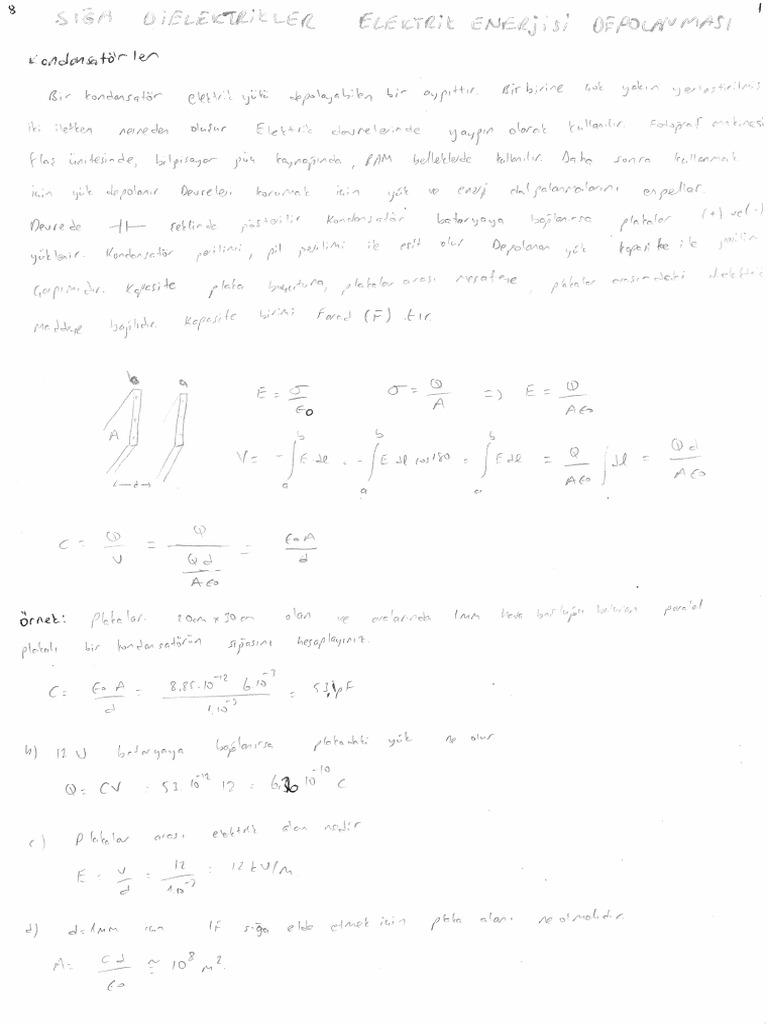 8
1
SIĞA DİELEKTRİKLER ELEKTRİK ENERJİSİ DEPOLANMASI
Kondansatörler
Bir kondansatör elektrik yükü depolayabilen bir aygıttır. Birbirine çok yakın yerleştirilmiş
iki iletken nesneden oluşur Elektrik devrelerinde yaygın olarak kullanılır. Fotoğraf makinesi
flaş ünitesinde, bilgisayar güç kaynağında, RAM belleklerde kullanılır. Daha sonra kullanmak
için yük depolanır Devreleri korumak için yük ve enerji dalgalanmalarını engeller.
Devrede ⊣⊢ şeklinde gösterilir Kondansatör bataryaya bağlanırsa plakalar (+) ve (-)
yüklenir. Kondansatör gerilimi, pil gerilimi ile eşit olur Depolanan yük kapasite ile gerilim
çarpımıdır. Kapasite plaka boyutuna, plakalar arası mesafeye, plakalar arasındaki dielektrik
maddeye bağlıdır. Kapasite birimi Farad (F) tır.
b a
A
d
E = σ/ε0 σ = Q/A => E = Q/Aε0
V = -∫_a^b E dl = -∫_a^b E dl cos180 = ∫_a^b E dl = Q/Aε0 ∫dl = Qd/Aε0
C = Q/V = Q/(Qd/Aε0) = ε0A/d
Örnek: Plakaları 20cm x 30cm olan ve aralarında 1mm hava boşluğu bulunan paralel
plakalı bir kondansatörün sığasını hesaplayınız.
C = ε0 A/d = 8.85·10^-12 6·10^-3/1·10^-3 = 53,1 pF
b) 12 V bataryaya bağlanırsa plakadaki yük ne olur
Q = CV = 53·10^-12 12 = 6,36 10^-10 C
c) Plakalar arası elektrik alan nedir
E = V/d = 12/1·10^-3 = 12 kV/m
d) d=1mm için 1F sığa elde etmek için plaka alanı ne olmalıdır.
A = Cd/ε0 ≅ 10^8 m^2.